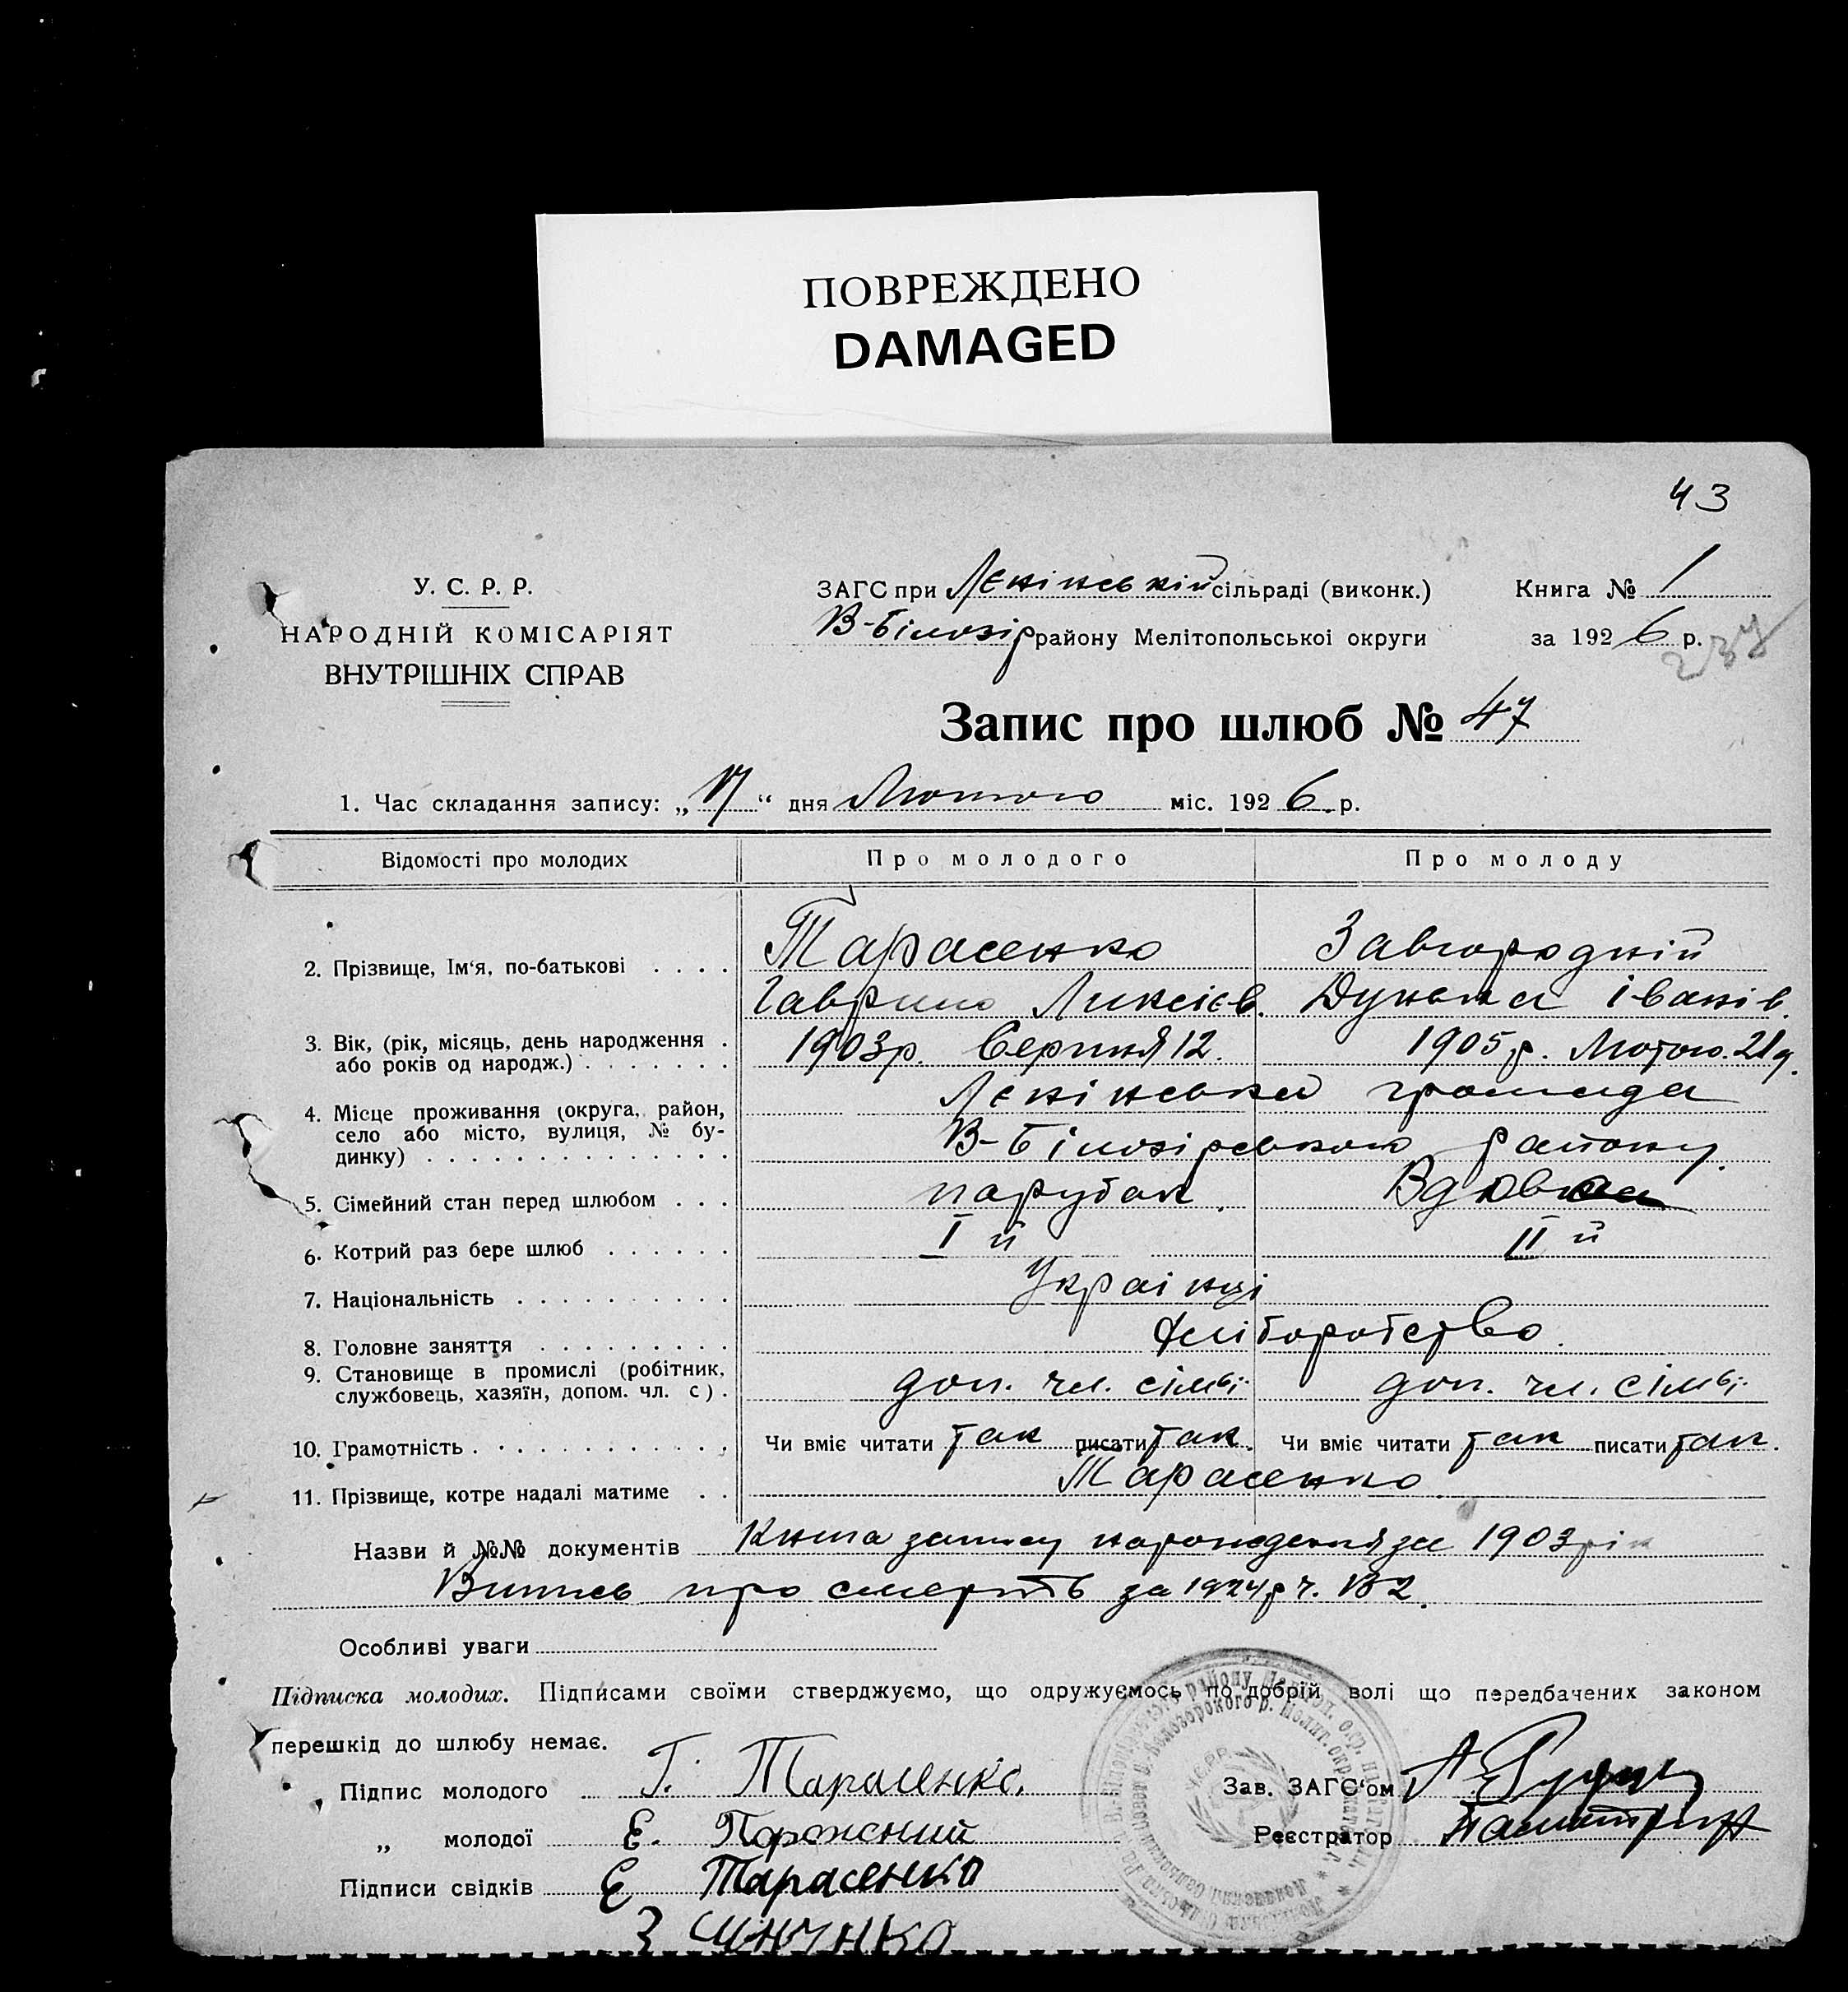 ПОВРЕЖДЕНО
DAMAGED
43
У. С. Р. Р.
НАРОДНІЙ КОМІСАРІЯТ
ВНУТРІШНІХ СПРАВ
ЗАГС при Лєнінській сільраді (виконк.)
В-Білозір району Мелітопольської округи
Книга № 1
за 1926 р.
237
Запис про шлюб № 47
1. Час складання запису: „17“ дня Лютого міс. 1926 р.
Відомості про молодих Про молодого Про молоду
2. Прізвище, Ім‘я, по-батькові . . . . Тарасенко Завгородній
Гаврило Ликсієв. Дунька Іванів.
3. Вік, (рік, місяць, день народження . 1903р. Серпня 12. 1905 р. Лютого 21 д.
або років од народж.) . . . . . . .
4. Місце проживання (округа, район, Лєнінська громада
село або місто, вулиця, № бу-
динку) . . . . . . . . . . . . . . В-Білозірського району.
5. Сімейний стан перед шлюбом . . . парубок. Вдова
6. Котрий раз бере шлюб . . . . . . I й II й
7. Національність . . . . . . . . . . Українці
8. Головне заняття . . . . . . . . . Хліборобство.
9. Становище в промислі (робітник,
службовець, хазяїн, допом. чл. с) . доп. чл. сімьї доп. чл. сімьї
10. Грамотність . . . . . . . . . . . Чи вміє читати так писати так. Чи вміє читати так писати так.
11. Прізвище, котре надалі матиме . . Тарасенко
Назви й №№ документів Книга запису народження за 1903 рік
Випись про смерть за 1924 р ч.
Особливі уваги
Підписка молодих. Підписами своїми стверджуємо, що одружуємось по добрій волі що передбачених законом
перешкід до шлюбу немає.
Підпис молодого Г. Тарасенко.
Зав. ЗАГС‘ом
„ молодої Е. Порожний
Реєстратор
Підписи свідків Е Тарасенко